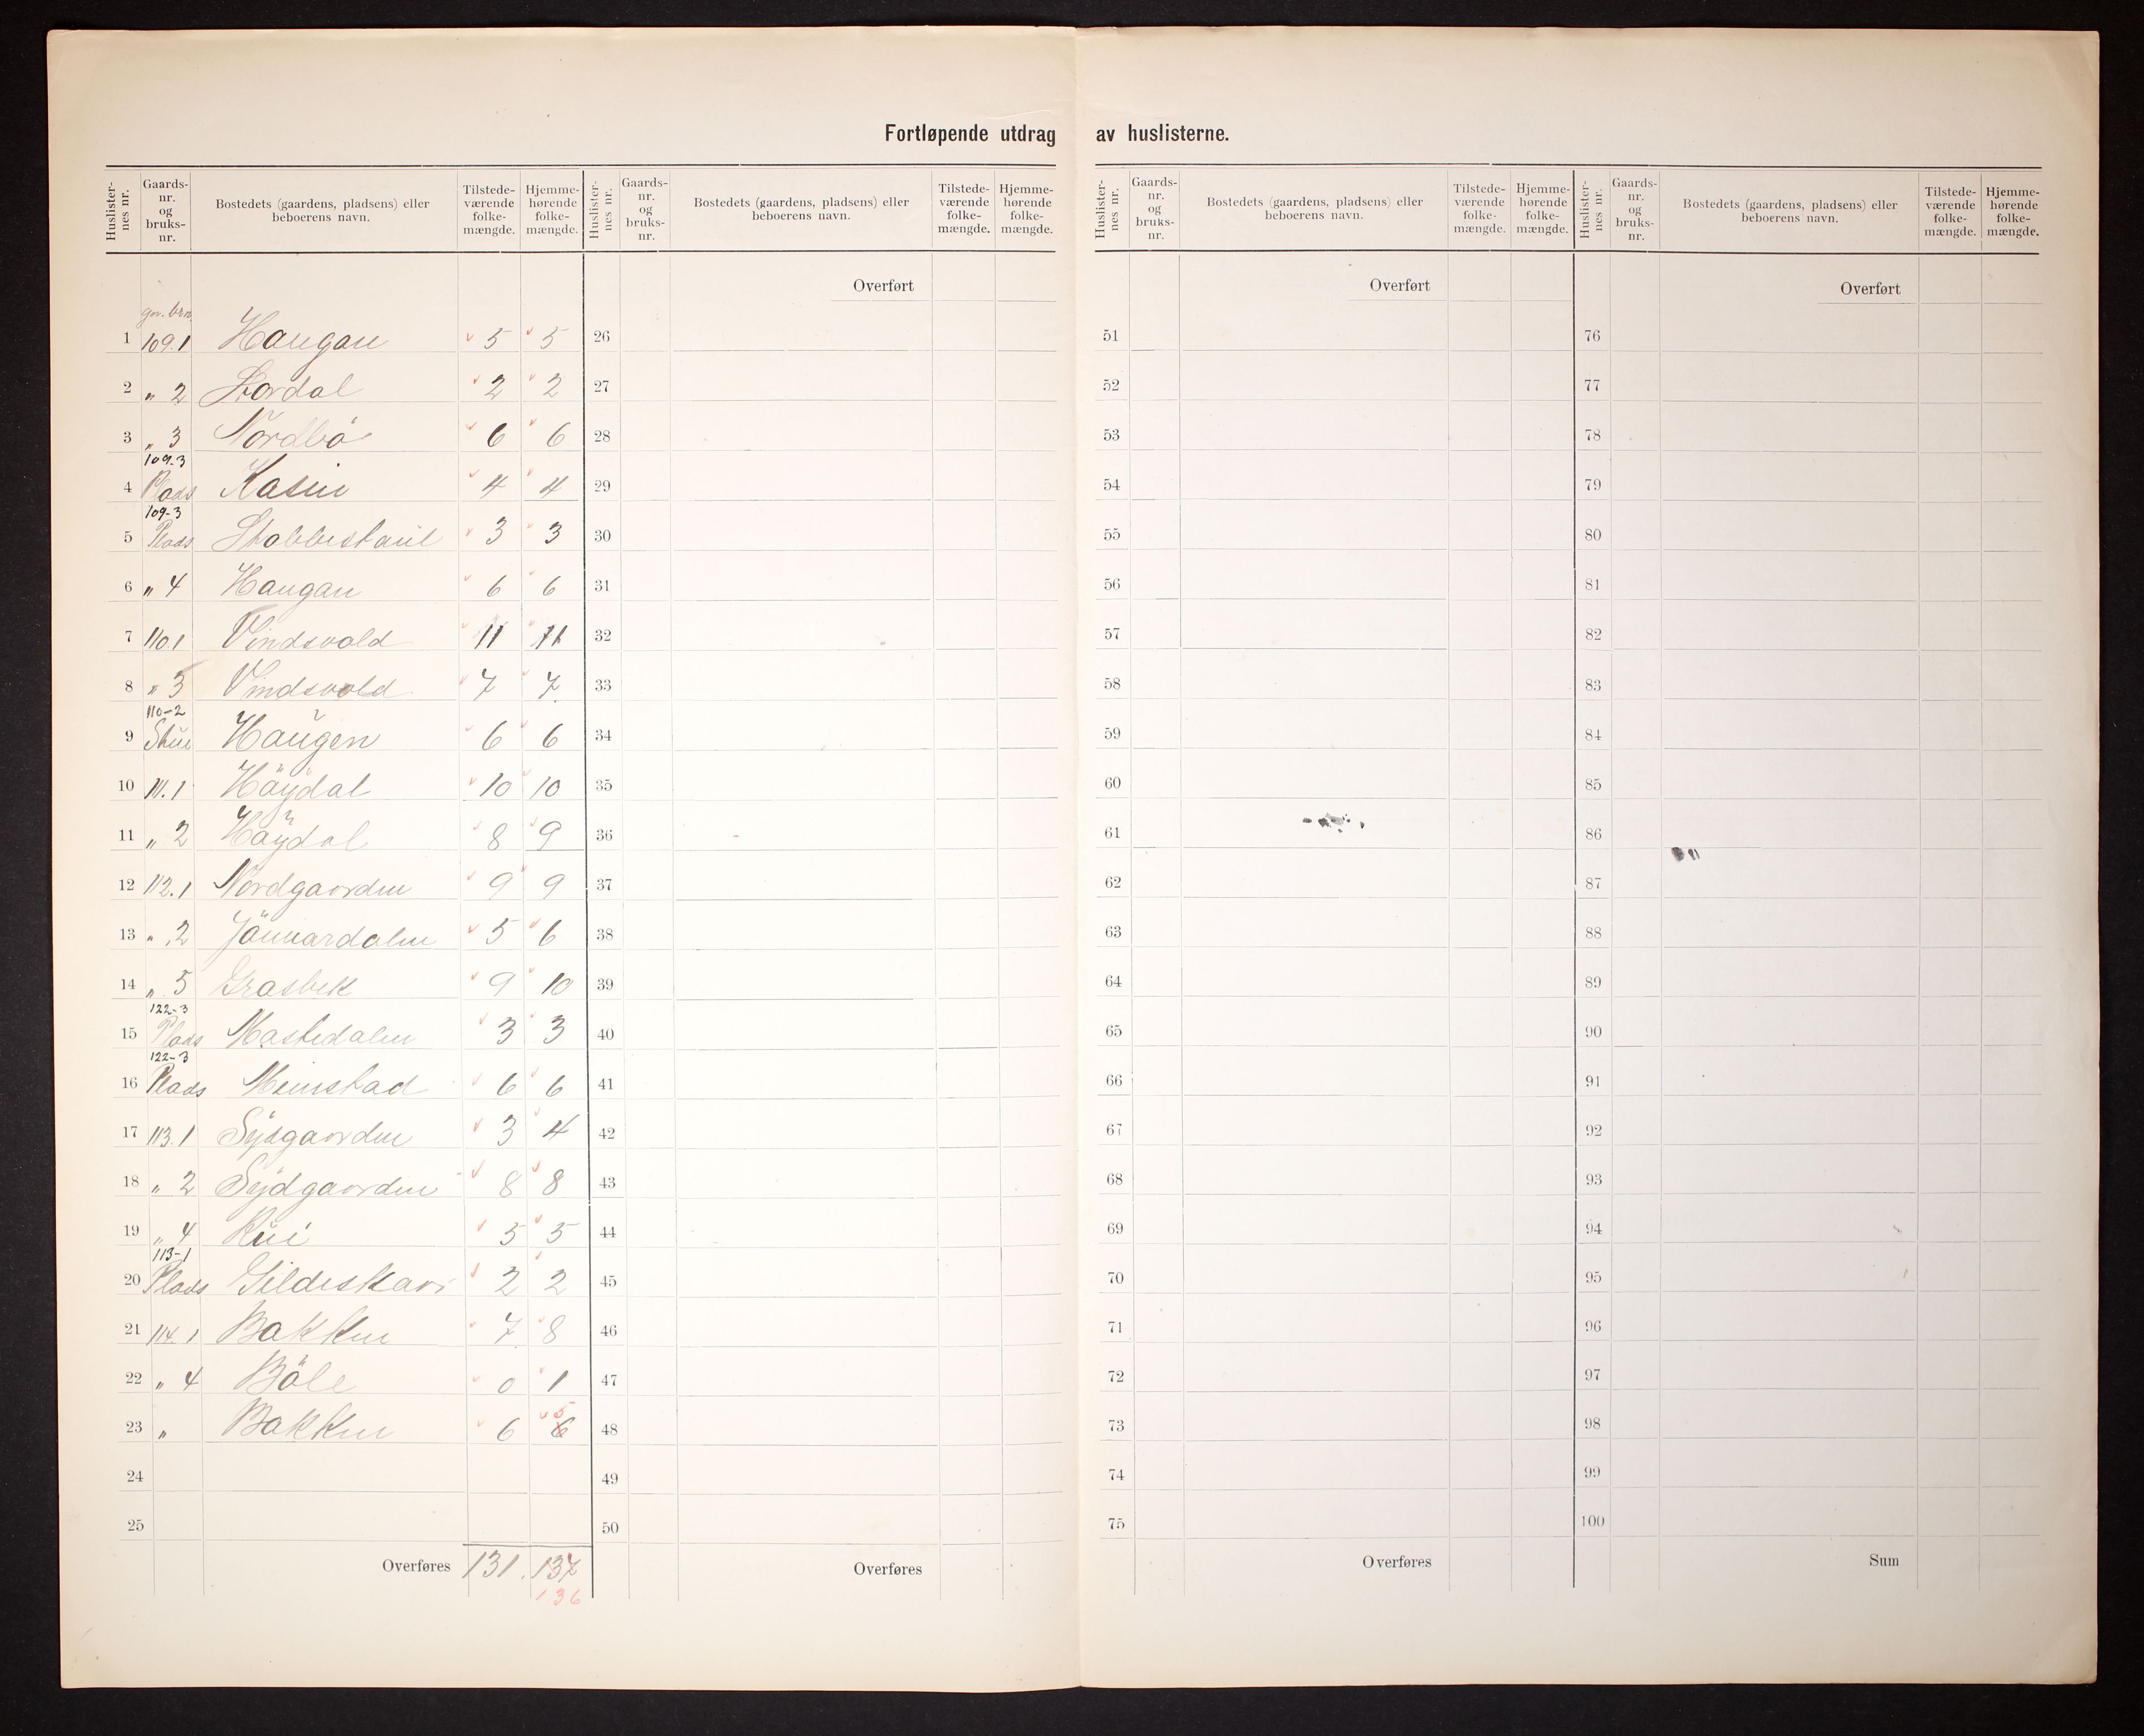 Fortløpende utdrag av huslisterne.
Huslisternes nr. Gaards-nr. og bruks-nr. Bostedets (gaardens, pladsens) eller beboerens navn. Tilstedeværende folkemængde. Hjemmehørende folkemængde.
Huslisternes nr. Gaards-nr. og bruks-nr. Bostedets (gaardens, pladsens) eller beboerens navn. Tilstedeværende folkemængde. Hjemmehørende folkemængde.
Huslisternes nr. Gaards-nr. og bruks-nr. Bostedets (gaardens, pladsens) eller beboerens navn. Tilstedeværende folkemængde. Hjemmehørende folkemængde.
Huslisternes nr. Gaards-nr. og bruks-nr. Bostedets (gaardens, pladsens) eller beboerens navn. Tilstedeværende folkemængde. Hjemmehørende folkemængde.
Overført Overført Overført
gnr. brn.
1 109.1 Haugan 5 5 26 51 76
2 " 2 Stordal 2 2 27 52 77
3 " 3 Nordbö 6 6 28 53 78
109-3
4 Plads Kasin 4 4 29 54 79
109-3
5 Plads Stabbustaul 3 3 30 55 80
6 " 4 Haugan 6 6 31 56 81
7 110.1 Vindsvold 11 11 32 57 82
8 " 3 Vindsvold 7 7 33 58 83
110-2
9 Stue Haugen 6 6 34 59 84
10 111.1 Höydal 10 10 35 60 85
11 " 2 Höydal 8 9 36 61 86
12 112.1 Nordgaarden 9 9 37 62 87
13 " 2 Jönnardalen 5 6 38 63 88
14 " 5 Grasbek 9 10 39 64 89
122-3
15 Plads Mastedalen 3 3 40 65 90
122-3
16 Plads Meinstad 6 6 41 66 91
17 113.1 Sydgaarden 3 4 42 67 92
18 " 2 Sydgaarden 8 8 43 68 93
19 " 4 Rui 5 5 44 69 94
113-1
20 Plads Gildeskaar 2 2 45 70 95
21 114.1 Bakken 7 8 46 71 96
22 " 4 Böle 0 1 47 72 97
5
23 " Bakken 6 6 48 73 98
24 49 74 99
25 50 75 100
Overføres 131 137 Overføres Overføres Sum
136